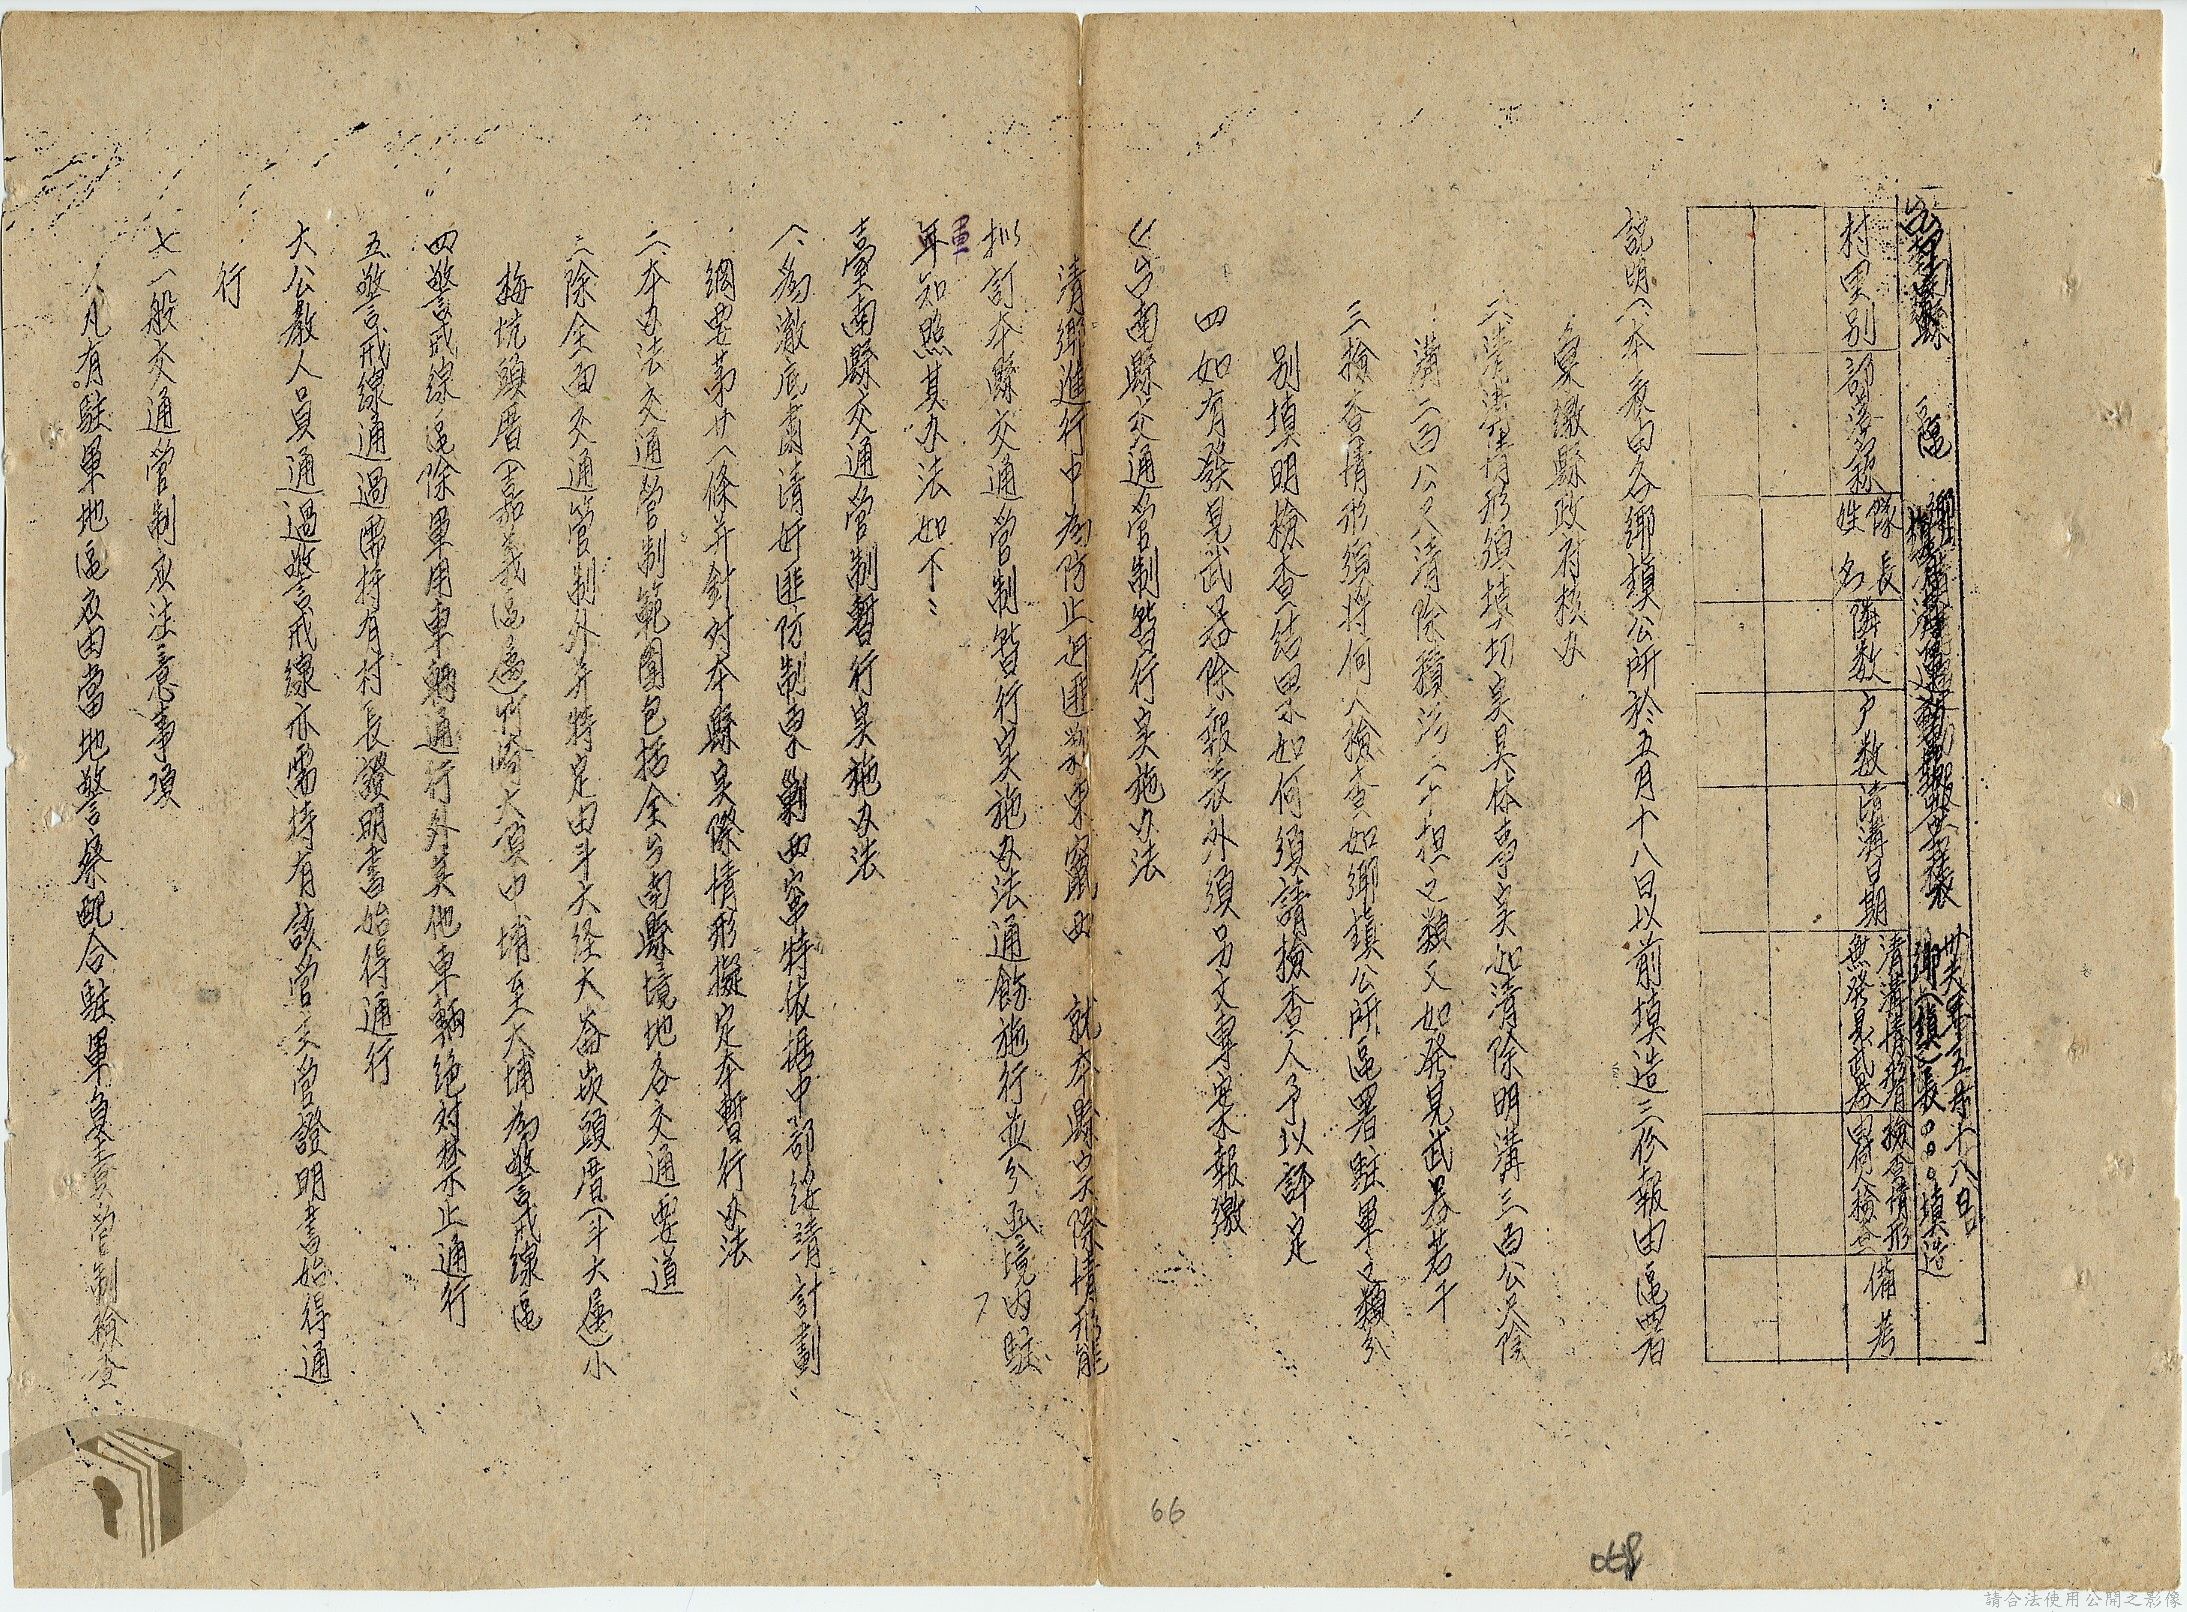 台南縣　區　鄉鎮清溝運動報告表
卅六年五月十八日
鄉(鎮)長○○○填造
村里別
部落名稱
隊長姓名
隣数
户数
清溝日期
清溝情形有無發見武器
檢查情形
備考
說明(一)本表由各鄉鎮公所於五月十八日以前填造三份報由區署
彙繳縣政府核办
二、清溝情形須填切实具体事实如清除明溝三百公尺陰
溝二百公尺清除積污二十担之類又如發見武器若干
三檢查情形須將何人檢查如鄉鎮公所區署駐軍之類分
別填明檢查結果如何須請檢查人予以評定
四如有發見武器除報表外須另文專案報繳
台南縣交通管制暫行实施办法
清鄉進行中為防止奸匪東竄西　就本縣实際情形能
拟訂本縣交通管制暫行实施办法通飭施行並分函境内駐
軍知照其办法如下：
臺南縣交通管制暫行实施办法
一、為澈底肅清奸匪防制東剿西竄特依据中部綏清計劃
綱要第廿一條并針对本縣实際情形擬定本暫行办法
二、本办法交通管制範圍包括全台南縣境地各交通要道
三除全面交通管制外并特定由斗六經大崙崁頭厝(斗六區)小
梅坑頭厝(嘉義區)竹崎大頂中埔至大埔為警戒線區
四警戒線區除軍用車輛通行外其他車輛絕对禁止通行
五警戒線通過需持有村長證明書始得通行
六公教人員通過警戒線亦需持有該管主管證明書始得通
行
七一般交通管制应注意事項
1凡有駐軍地區应由當地警察配合駐軍負責管制檢查
66
068
請合法使用公開之影像